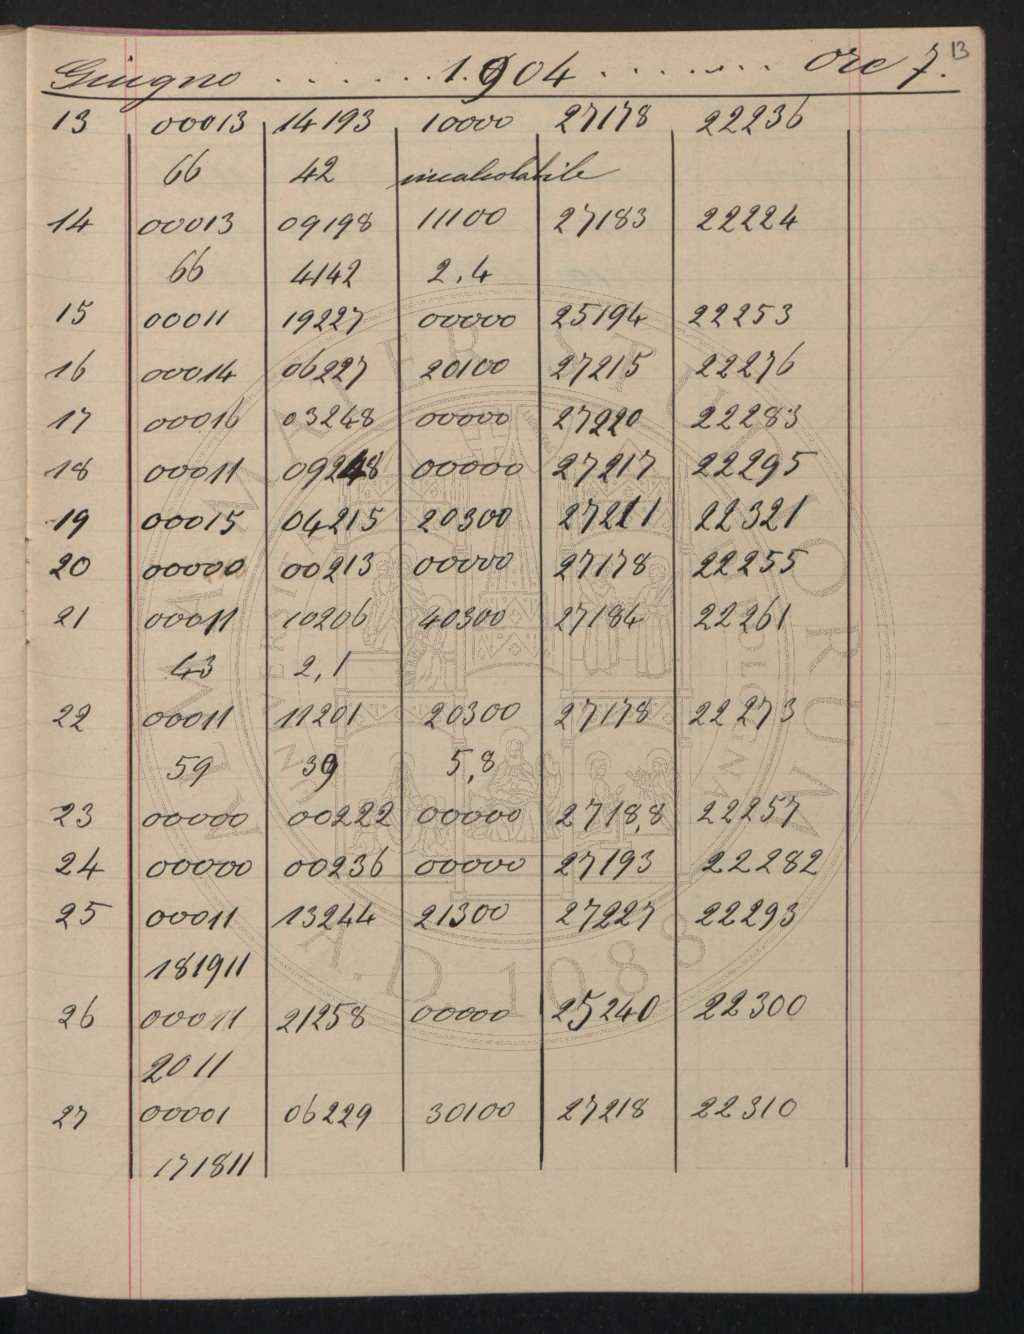 13
Giugno . . . . . . . 1.904 . . . . . . . . ore 7.
13 00013 14193 10000 27178 22236
66 42 incalcolabile
14 00013 09198 11100 27183 22224
66 4142 2,4
15 00011 19227 00000 25194 22253
16 00014 06227 20100 27215 22276
17 00016 03248 00000 27220 22283
18 00011 09248 00000 27217 22295
19 00015 04215 20300 27211 22321
20 00000 00213 00000 27178 22255
21 00011 10206 40300 27184 22261
43 2,1
22 00011 11201 20300 27178 22273
59 39 5,8
23 00000 00222 00000 2718,8 22257
24 00000 00236 00000 27193 22282
25 00011 13244 21300 27227 22293
181911
26 00011 21258 00000 25240 22300
2011
27 00001 06229 30100 27218 22310
171811
ALMA MATER STUDIORUM
A.D. 1088